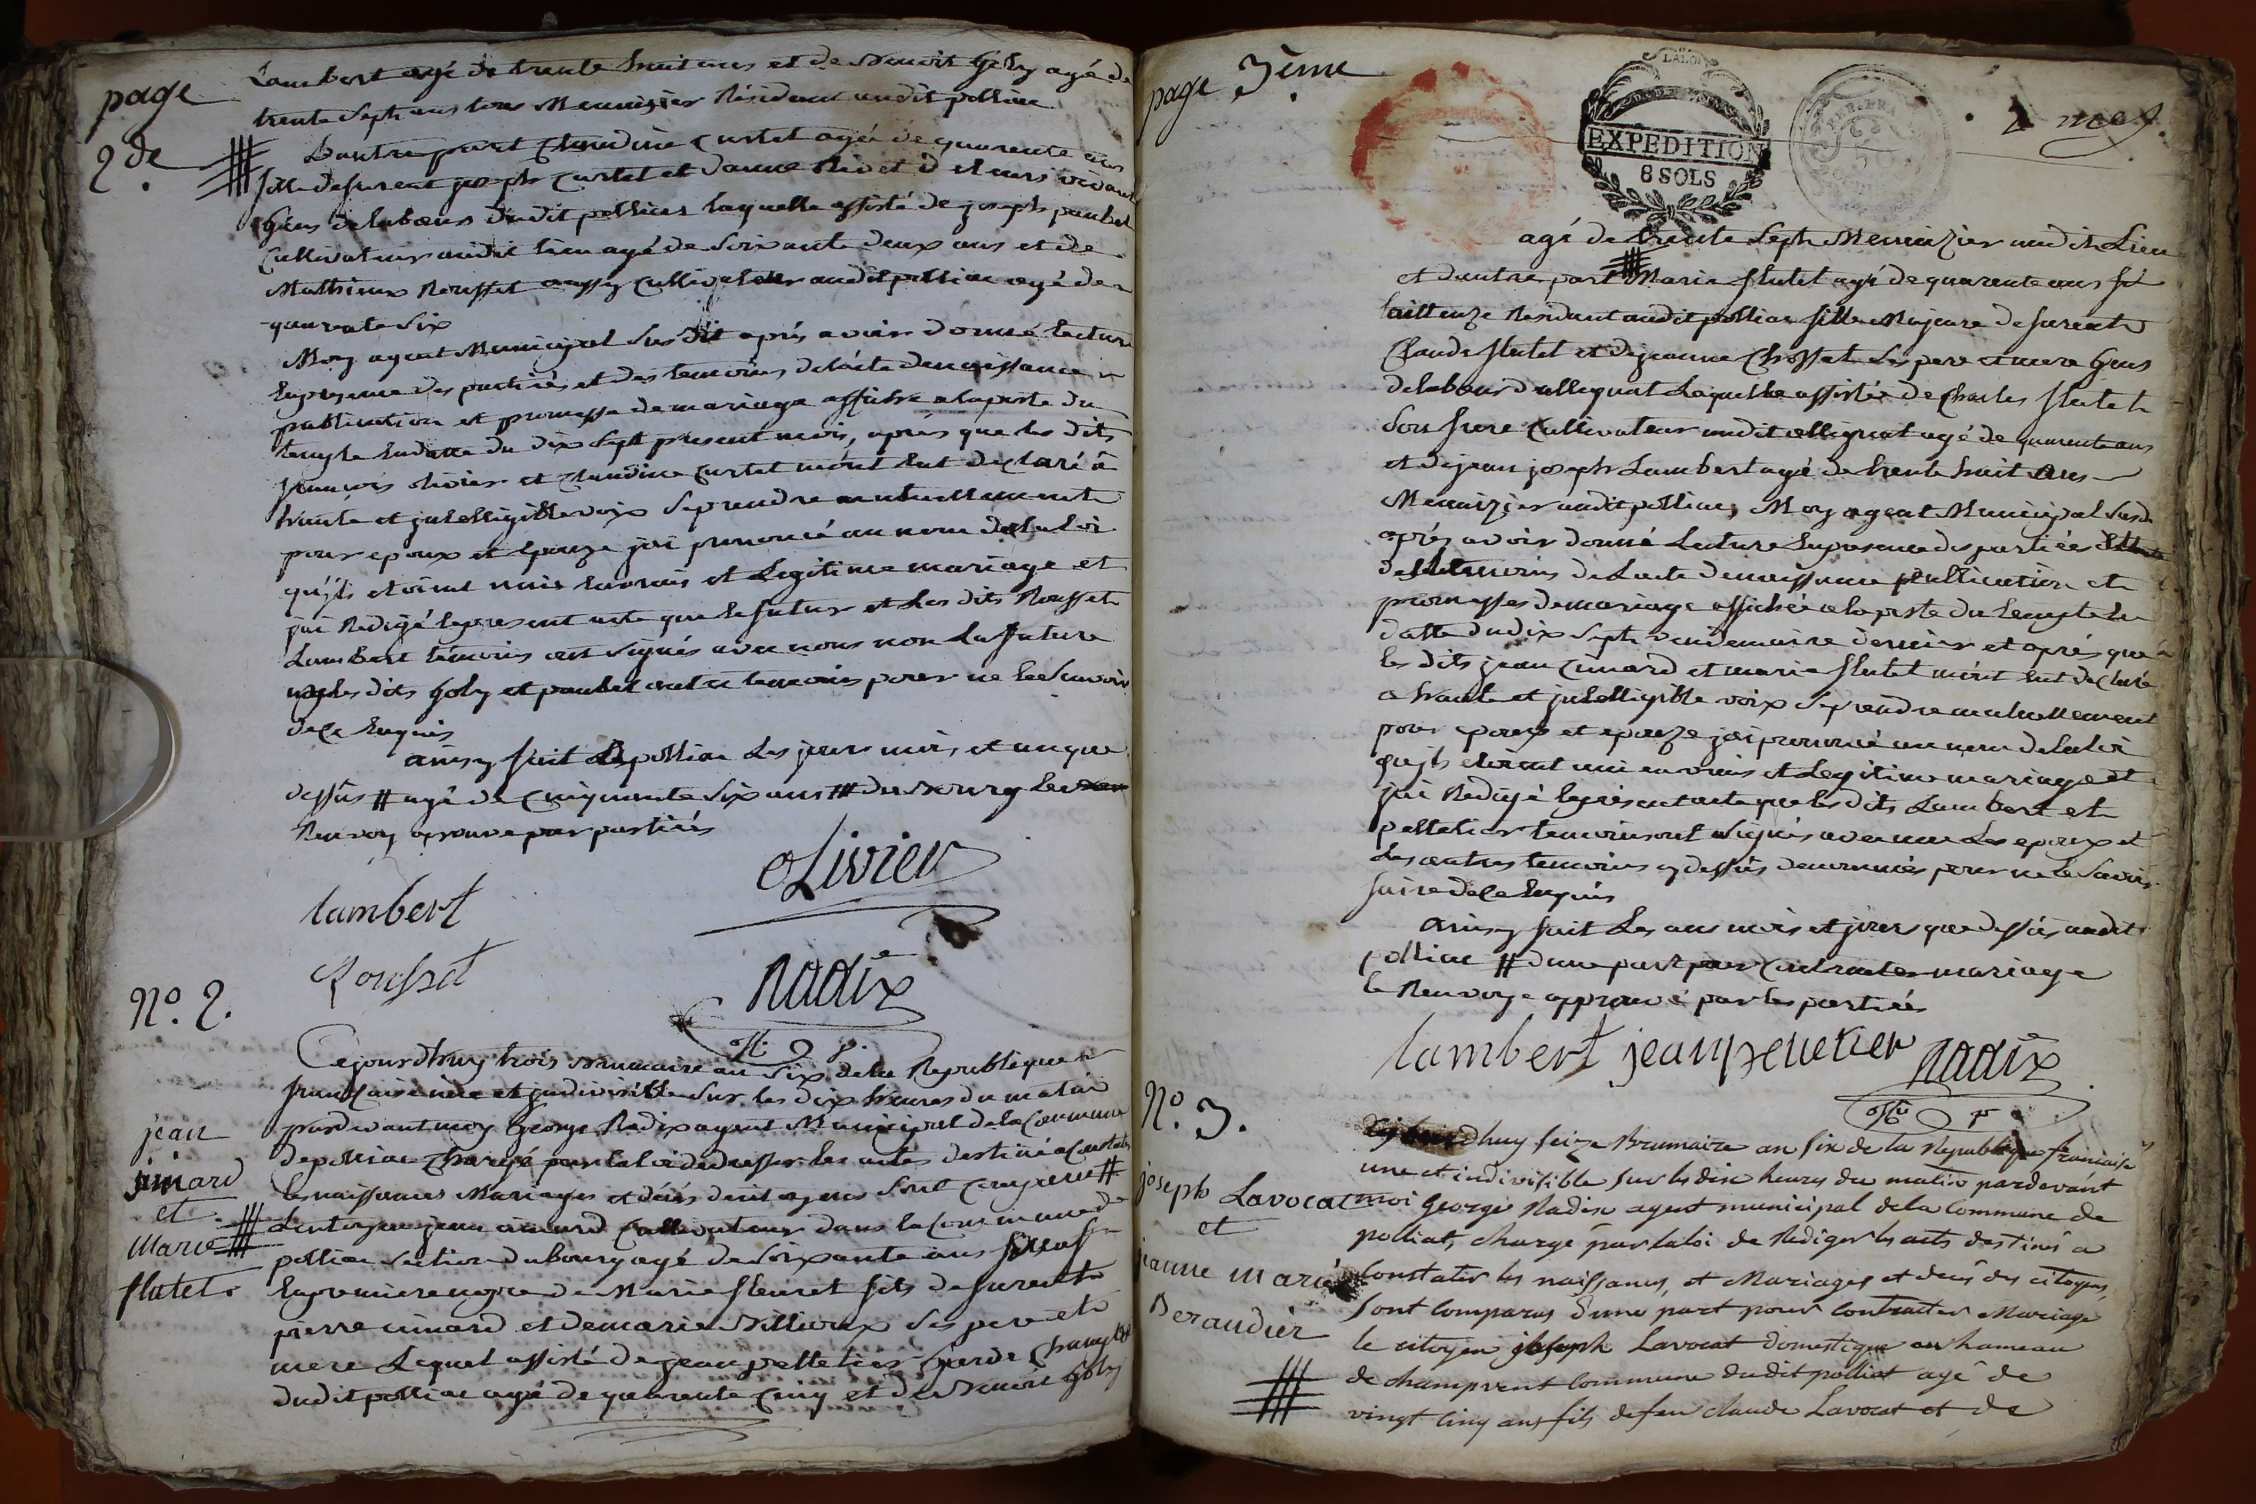 page
2de
Lambert agé de trente huit ans et de Benoit Goby agé de
trente Sept ans tous Menuizier Résident audit polliac
Dautre part Claudine Curtet agée de quarente ans
fille de furent joseph Curtet et danne
Gens de labeurs dudit polliac laquelle assisté de joseph paubel
Cultivateur audit lieu agé de Soixante deux ans et de
Mathieux Rousset aussy Cultivateur audit polliac agé de
quarente Six
Moy agent Municipal Susdit aprés avoir donné lecture
En presence des partiés et des temoins de lácte de naissance
publication et promesse de mariage affiché a la porte du
temple En datte du dix Sept present mois, aprés que les dits
françois olivier et Claudine Curtet móńt Eut declaré a
haute et jntelligible voix Se prendre mutuellement
pour epoux et Epouze jái prononcé au nom de la Loi
qu'ils etoient unis En vrais et Legitime mariage et
jai Redigé le present acte que le futur et les dits Rousset
Lambert témoins ont signés avec nous non La future
les dits Goby et paubel temoins pour ne le Savoir
de ce Enquis
ainsy fait a polliac Les jour mois et an que
dessus # agé de Cinquante Six ans # du Bourg Le
Renvoy aprouve par partiés
olivier
lambert
Rousset
Nadix
Nº. 2.
jean
jimard
et
Marie
flutet.
Cejourdhuy trois Brumaire an Six de la Republique
francaise une et jndivisible Sur les dix heures du matin
pardevant moy George Nadix agent Municipal de la Commune
de polliac Chargé par la loi de dresser les actes destiné a Constater
les naissances Mariages et décés des citoyens Sont Comparu #
Le citoyen jean cimard Cultivateur dans la Commune de
polliac Section du bourg agé de Soixante ans
En premiere nopce de Marie fleuret fils de furent
pierre cimard et de marie Billioux Ses pere et
mere Lequel assisté de jean pelletier Garde Champêtre
dudit polliac agé de quarente Cinq et de Benoit Goby
page 3ème
EXPEDITION
8 SOLS
agé de trente Sept Menuizier audit Lieu
et dautre part Marie flutet agé de quarente ans
tailleuze Residant audit polliac fille Majeure de furent
Claude flutet et de jeanne Chossat Ses pere et mere Gens
de labeur laquelle assistée de Charles flutet
Son frere Cultivateur audit agé de quarente ans
et de jean joseph Lambert agé de trente huit ans
Menuizier audit polliac, Moy agent Municipal Susdit
aprés avoir donné Lecture En presence des partiés
de temoins de Lacte de naissance publication et
promesses de mariage affichée a la porte du temple En
datte du dix Sept vendemiaire dernier et aprés que
les dits jean cimard et marie flutet mónt Eut declaré
a haute et jntelligible voix Se prendre mutuellement
pour epoux et epouze jai prononcé au nom de la loi
quils etoient uni en vrais et Legitime mariage et
jai Redigé le présent acte que les dits Lambert et
pelletier temoins ont signés avec nous Les epoux et
Les autres temoins cy dessus denommés pour ne le Savoir
faire de ce Enquis
ainsy fait Les ans mois et jour que dessus audit
polliac # dune part pour Contracter mariage
le Renvoye approuvé par les partiés
lambert jean pelletier Nadix
Nº. 3.
joseph Lavocat
et
jeanne marie
Beraudier
Cejourdhuy seize Brumaire an six de la Republique francaise
une et indivisible sur les dix heures du matin pardevant
moi George Nadix agent municipal de la Commune de
polliat, chargé par la loi de Rediger les acts destinés a
Constater les naissances, et Mariages et decés des citoyens,
sont Comparus dune part pour Contracter Mariage
le citoyen joseph Lavocat domestique au hameau
de champvent Commune dudit polliat agé de
vingt Cinq ans fils defeu claude Lavocat et de